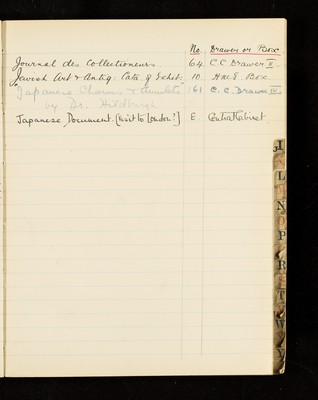 No. Drawer or Box
Journal des Collectioneurs. 64. C.C Drawer II.
Jewish Art & Antiq: Cata. of Exhib: 10. Box.
Japanese Charms & Amulets 161 C. C. Drawer IV.
by Dr. Hildburgh
Japanese Document. [visit to London?] E. Central Cabinet.
J
L
N
O
P
R
T
W
Y